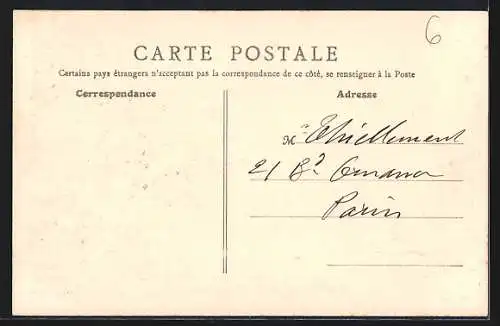 6
CARTE POSTALE
Certains pays étrangers n'acceptant pas la correspondance de ce côté, se renseigner à la Poste
Correspondance
Adresse
M. Thiellement
21 Bd
Paris